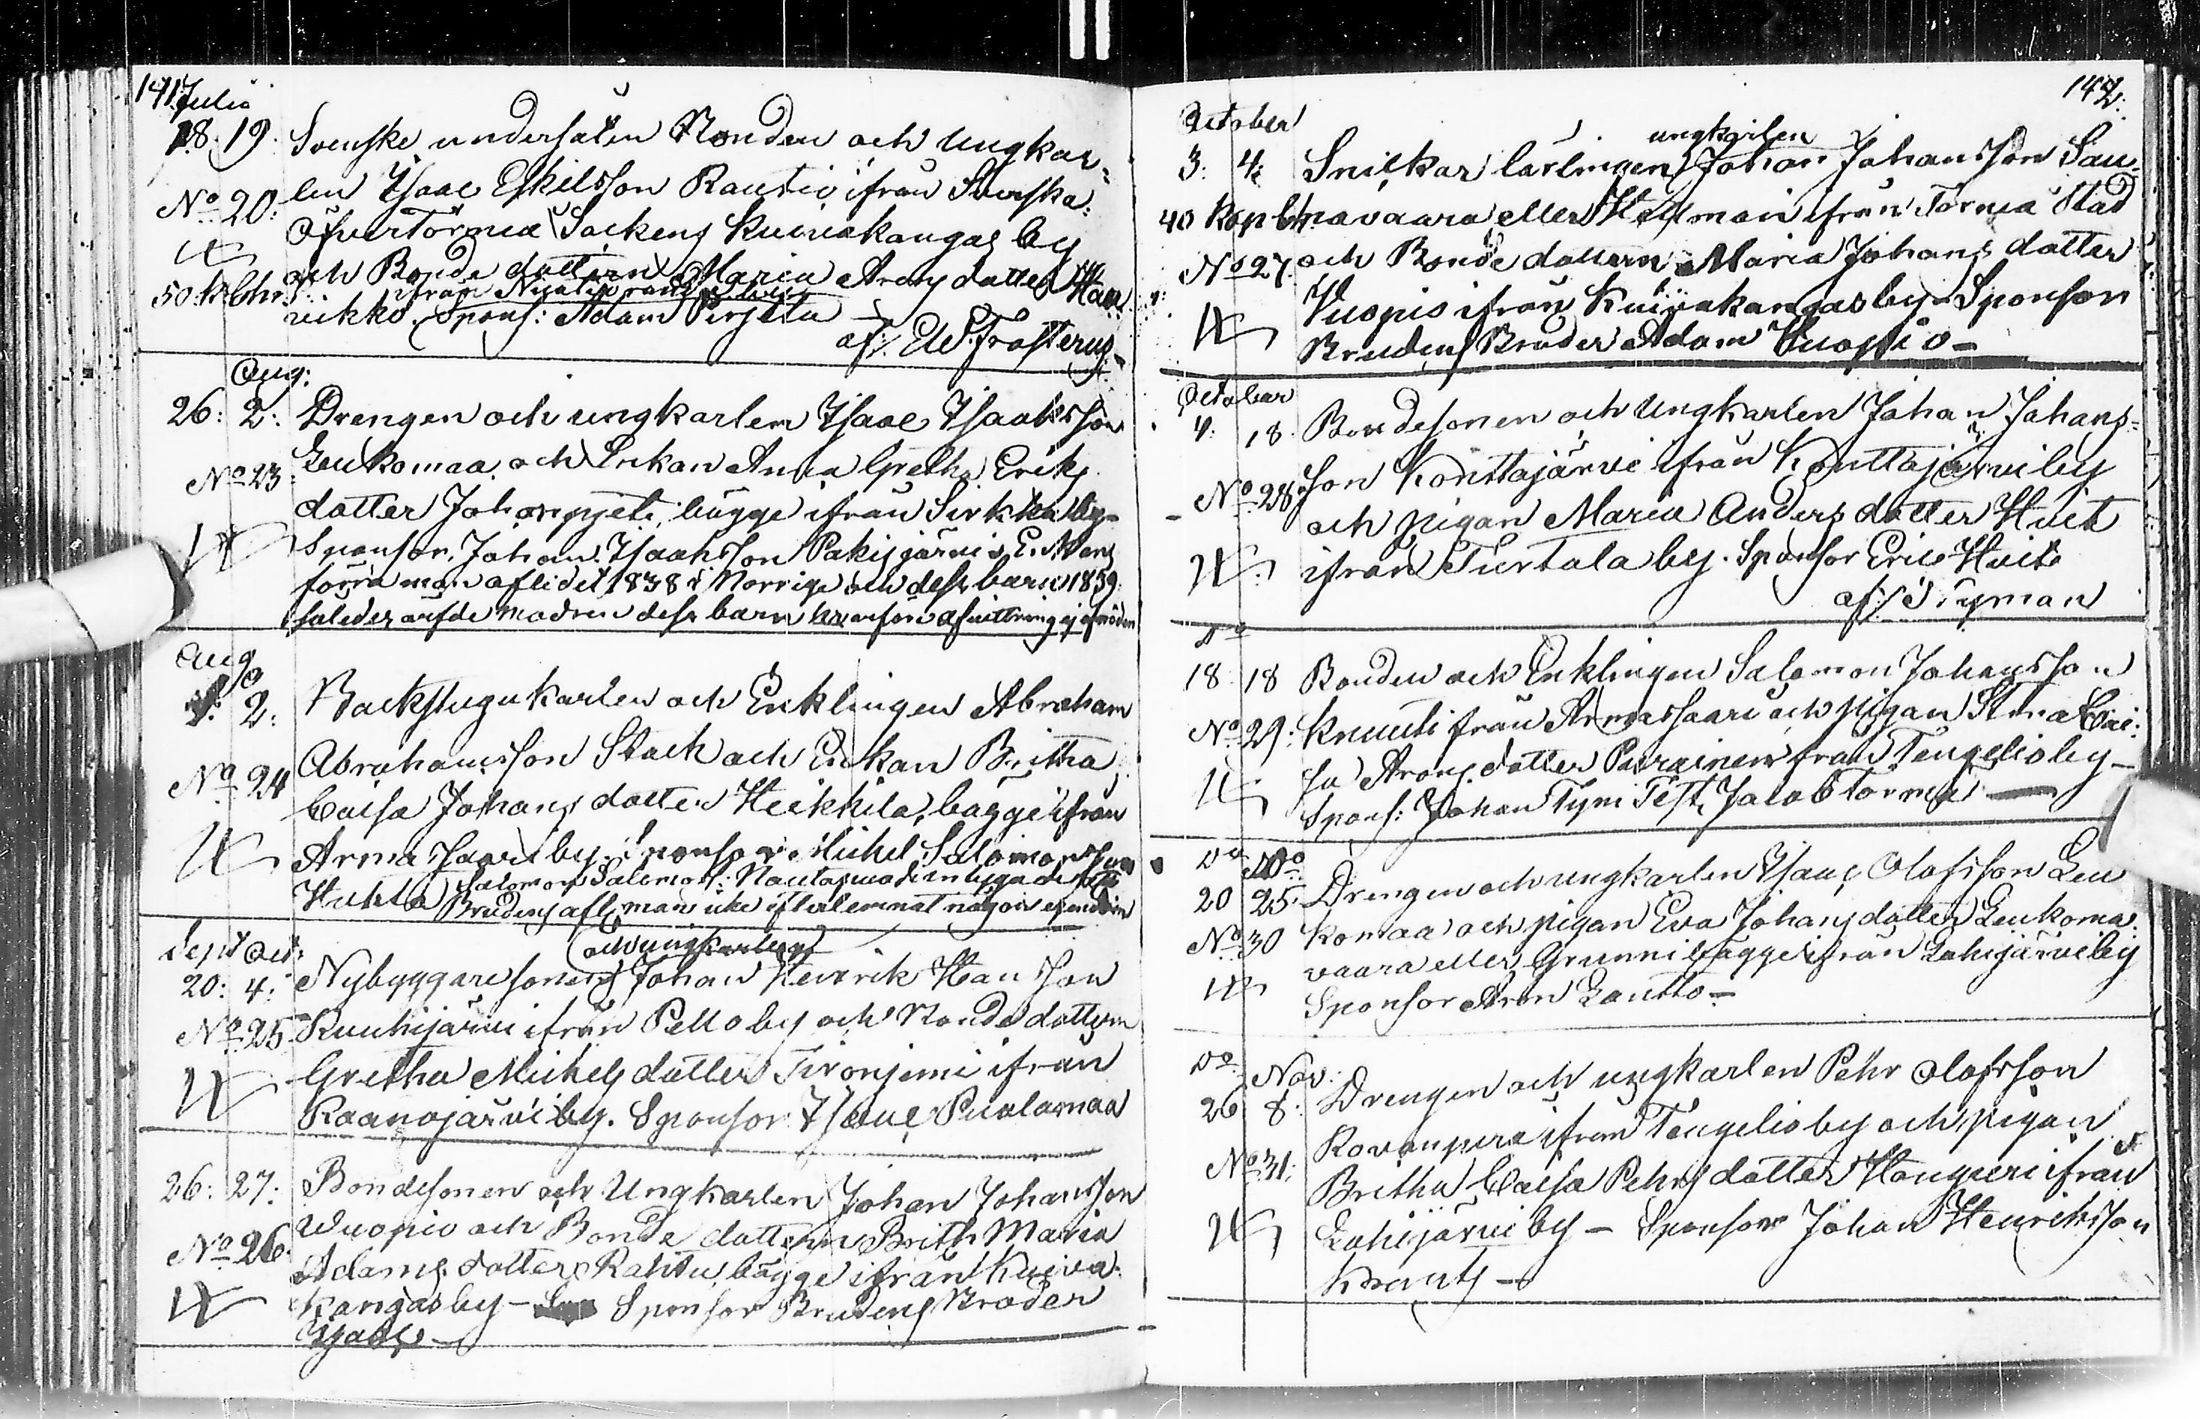 141
Julii
18: 19: Svenske undersåten Bonden och Ungkar-
No 20: len Isaac Eskilsson Rautio ifrån Svenska
Öfvertorneå Sockens Kuivakangas by
och Bonde dottern Maria Arons dotter
50 k. ifrån
vikko. Spons: Adam Pirjetä
af: E.W. Frosterus
Aug:
26: 2: Drengen och ungkarlen Isaac Isaaksson
No 23: Leukomaa och Enkan Anna Gretha Eriks
dotter Johonpjeti, bägge ifrån Sirkka by
Sponsor Johan Isaaksson Pakisjärvi, Enkans
förra man aflidet 1838 i Norrige och dess barn 1839
således ärfde modren dess barn hvarföre afvittring ej
Aug
2: Backstugukarlen och Enklingen Abraham
No 24 Abrahamsson Stack och Enkan Britha
Caisa Johans dotter Heikkilä, bägge ifrån
Armassaari by. Sponsor Michel Salomonsson
Huhta Salomon Salomons:
Brudens afl: man icke efterlemnat någon egendom
Sept Oct:
och ungkarlen
20: 4: Nybyggaresonen Johan Henrik Hansson
No 25 Ruuhijärvi ifrån Pello by och Bonde dottren
Gretha Michels dotter Tironjemi ifrån
Raanojärvi by. Sponsor Isaac Puolamaa
26: 27: Bondesonen och Ungkarlen Johan Johansson
Wuopio och Bonde dottern Brith Maria
No 26 Adams dotter Rahtu, bägge ifrån Kuiva-
kangas by – Sponsor Brudens Broder
Isaac –
142:
October
ungkarlen
3: 4: Snickar lärlingen Johan Johansson Sau-
40 Kop navaara eller Heijman ifrån Torneå Stad
No 27. och Bonde dottern Maria Johans dotter
Vuopio ifrån Kuivakangas by – Sponsor
Brudens Broder Adam Vuopio –
October
4: 18. Bondesonen och Ungkarlen Johan Johans-
No 28 son Konttajärvi ifrån Konttajärvi by
och pigan Maria Anders dotter Huit
ifrån Turtola by. Sponsor Eric Huit
af: Nyman
Do
18 18 Bonden och Enklingen Salomon Johansson
No 29: Knuuti från Armassaari och pigan Stina Cai-
sa Arons dotter Parainen från Tengeliö by –
Spons: Johan Tyni Test. Jacob Tormä –
Do Do
20 25 Drengen och ungkarlen Isaac Olofsson Leu
No 30 komaa och pigan Eva Johans dotter Leukoma-
vaara eller Grunni bägge ifrån Lohijärvi by
Sponsor Aron Lautto –
Do Nov:
26 8: Drengen och ungkarlen Pehr Olofsson
Rovanperä ifrån Tengeliö by och pigan
No 31: Britha Caisa Pehrs dotter Hougieri ifrån
Lohijärvi by – Sponsor Johan Henriksson
Krants –